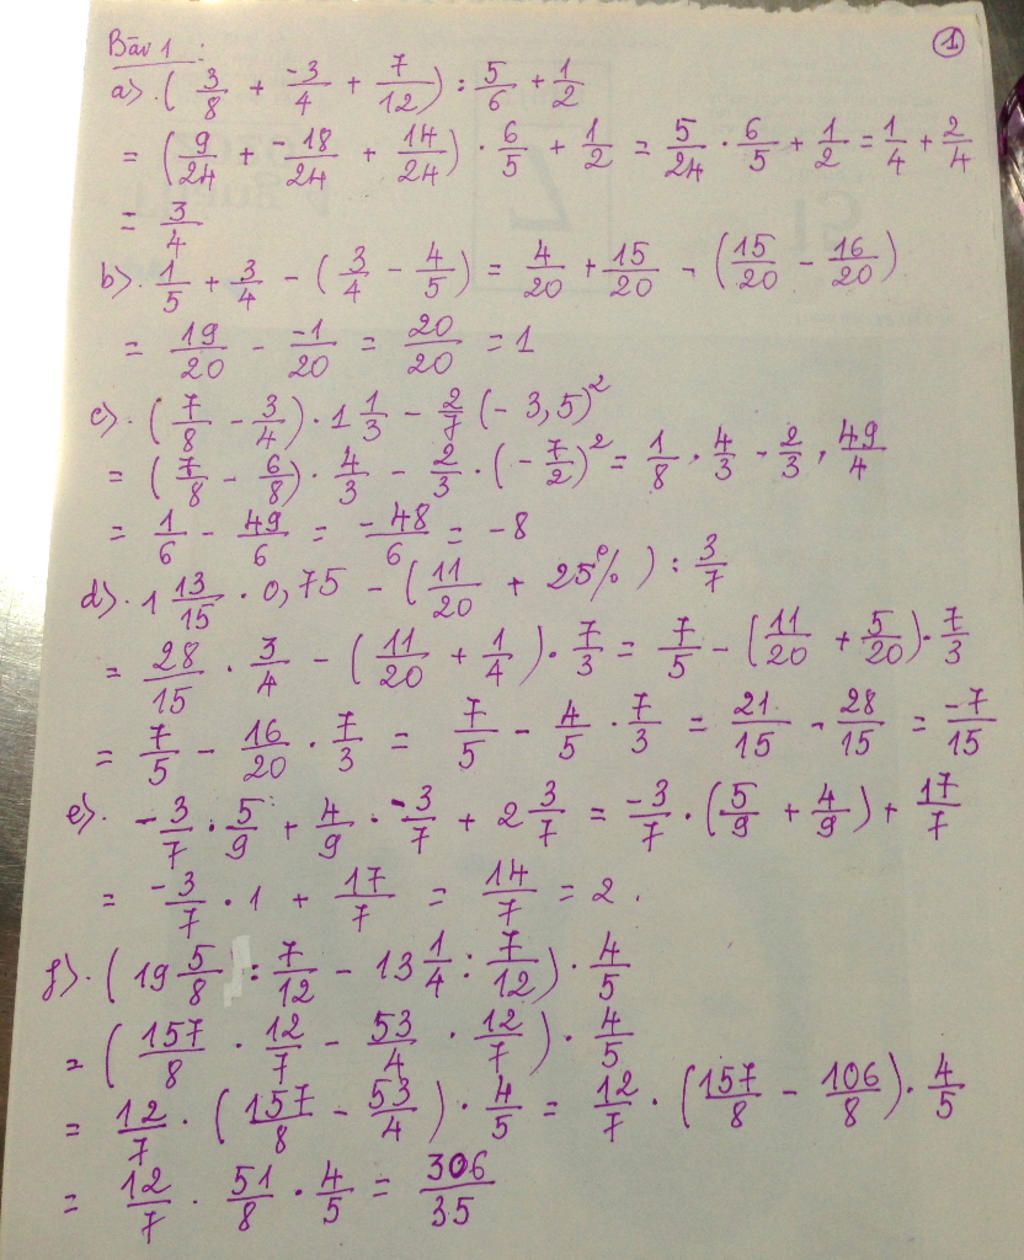 ①
Bài 1 :
a). (3/8 + -3/4 + 7/12) : 5/6 + 1/2
= (9/24 + -18/24 + 14/24) . 6/5 + 1/2 = 5/24 . 6/5 + 1/2 = 1/4 + 2/4
= 3/4
b). 1/5 + 3/4 - (3/4 - 4/5) = 4/20 + 15/20 - (15/20 - 16/20)
= 19/20 - -1/20 = 20/20 = 1
c). (7/8 - 3/4) . 1 1/3 - 2/7 (- 3,5)²
= (7/8 - 6/8) . 4/3 - 2/3 . (- 7/2)² = 1/8 . 4/3 - 2/3 . 49/4
= 1/6 - 49/6 = -48/6 = -8
d). 1 13/15 . 0,75 - (11/20 + 25%) : 3/7
= 28/15 . 3/4 - (11/20 + 1/4) . 7/3 = 7/5 - (11/20 + 5/20) . 7/3
= 7/5 - 16/20 . 7/3 = 7/5 - 4/5 . 7/3 = 21/15 - 28/15 = -7/15
e). -3/7 . 5/9 + 4/9 . -3/7 + 2 3/7 = -3/7 . (5/9 + 4/9) + 17/7
= -3/7 . 1 + 17/7 = 14/7 = 2 .
f). (19 5/8 : 7/12 - 13 1/4 : 7/12) . 4/5
= (157/8 . 12/7 - 53/4 . 12/7) . 4/5
= 12/7 . (157/8 - 53/4) . 4/5 = 12/7 . (157/8 - 106/8) . 4/5
= 12/7 . 51/8 . 4/5 = 306/35